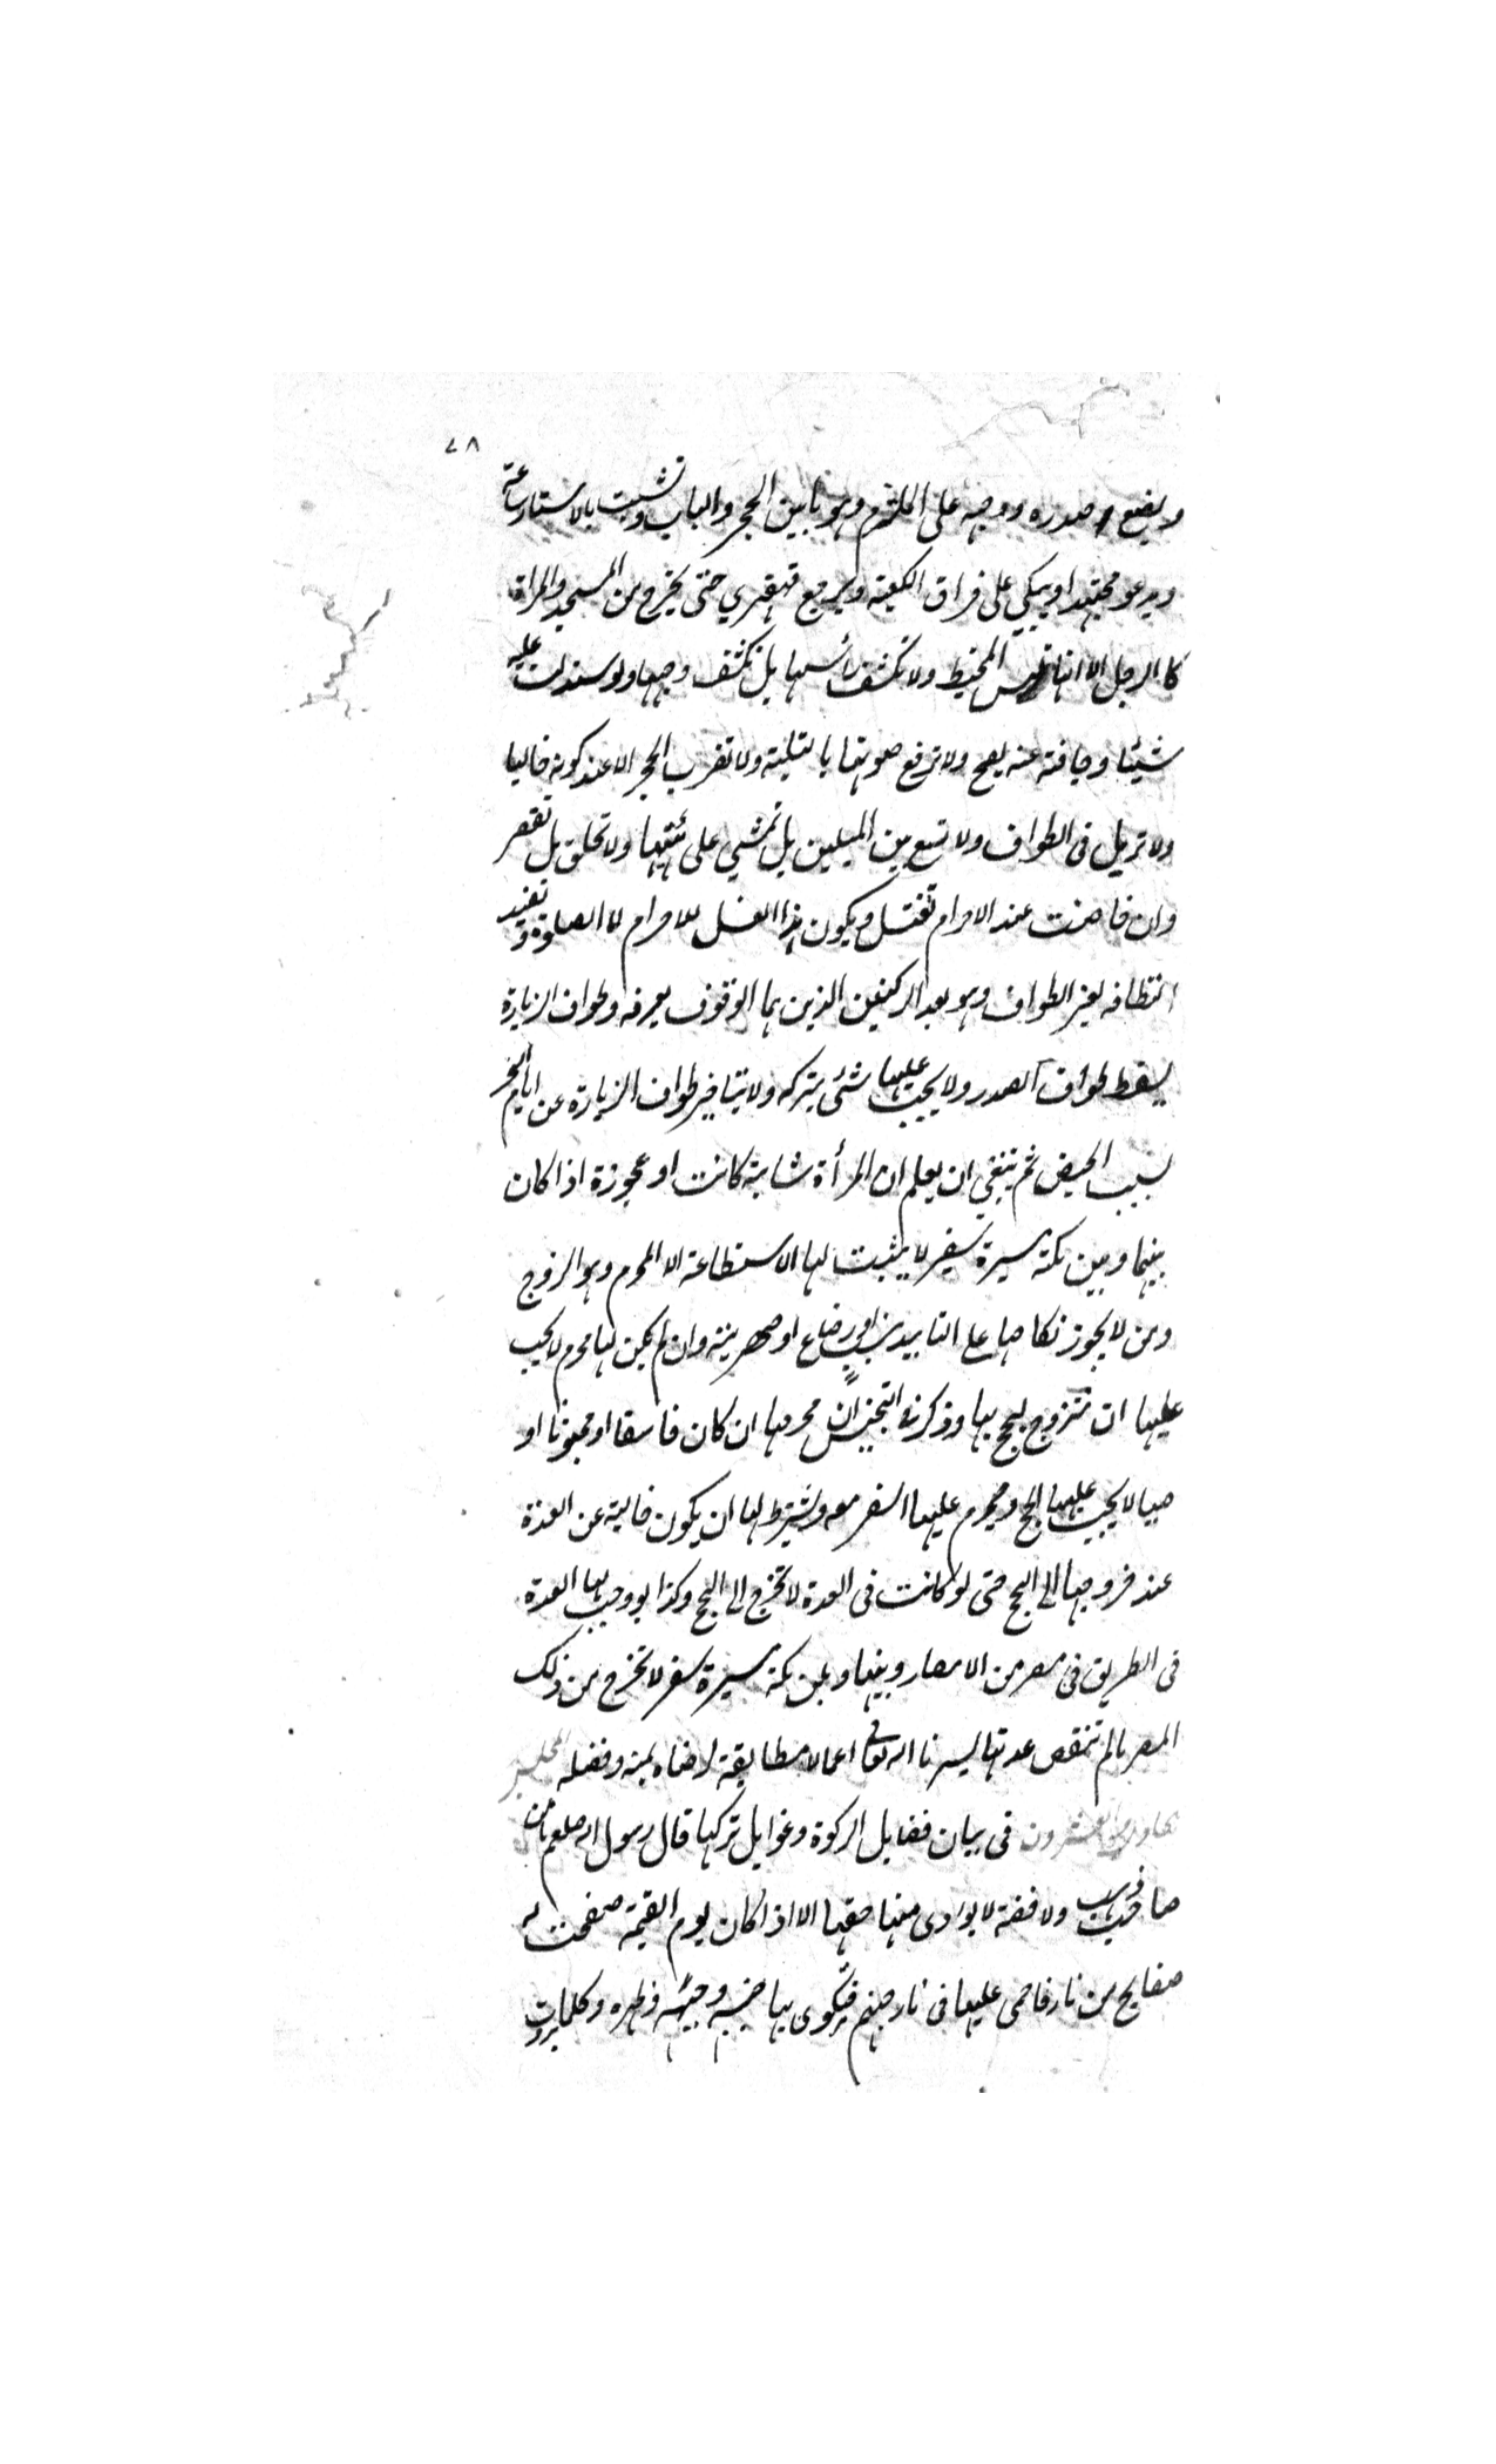 ٧٨
ويضع صدره ووجهه على الملتزم وهو ما بين الحجر والباب ويتشبث بالاستار ساعة
ويدعو مجتهدا ويبكي على فراق الكعبة ويرجع قهقري حتى يخرج من المسجد والمراة
كالرجل الا انها تلبس المخيط ولا تكشف رأسها بل تكشف وجهها ولو سدلت عليه
شيئا وجافته عنه يصح ولا ترفع صوتها بالتلبية ولا تقرب الحجر الا عند كونه خاليا
ولا ترمل في الطواف ولا تسع بين الميلين بل تمشي على هينتها ولا تحلق بل تقصر
وان حاضت عند الاحرام تغتسل ويكون هذا الغسل للاحرام لا الصلوة وتفيد
النظافه لغير الطواف وهو بعد الركنين الذين هما الوقوف بعرفه وطواف الزيارة
يسقط طواف الصدر ولا يجب عليها شئ بتركه ولا بتاخير طواف الزيارة عن ايام النحر
بسبب الحيض ثم ينبغي ان يعلم ان المرأة شابة كانت او عجوزة اذا كان
بينها وبين مكة مسيرة سفر لا يثبت لها الاستطاعة الا المحرم وهو الزوج
ومن لا يجوز نكاحها على التابيد بنسب او رضاع او صهرية وان لم يكن لها محرم لا يجب
عليها ان تتزوج ليحج بها وذكر في التجنيس ان محرمها ان كان فاسقا او مجنونا او
صبيا لا يجب عليها الحج ويحرم عليها السفر معه ويشترط لها ان يكون خالية عن العدة
عند خروجها الى الحج حتى لو كانت في العدة لا تخرج الى الحج وكذا لو وجب لها العدة
في الطريق في مصر من الامصار وبينها وبين مكة مسيرة سفر لا تخرج من ذلك
المصر ما لم تنقص عدتها يسرنا الله تعالى اعمالا مطابقة لرضاه بمنه وفضله المجلس
والعشرون في بيان فضايل الزكوة وغوايل تركها قال رسول الله صلعم ما من
صاحب ذهب ولا فضة لا يوادى منها حقها الا اذا كان يوم القيمة صفحت له
صفايح من نار فاحمى عليها في نار جهنم فيكوى بها جنبه وجبينه وظهره وكلما بردت